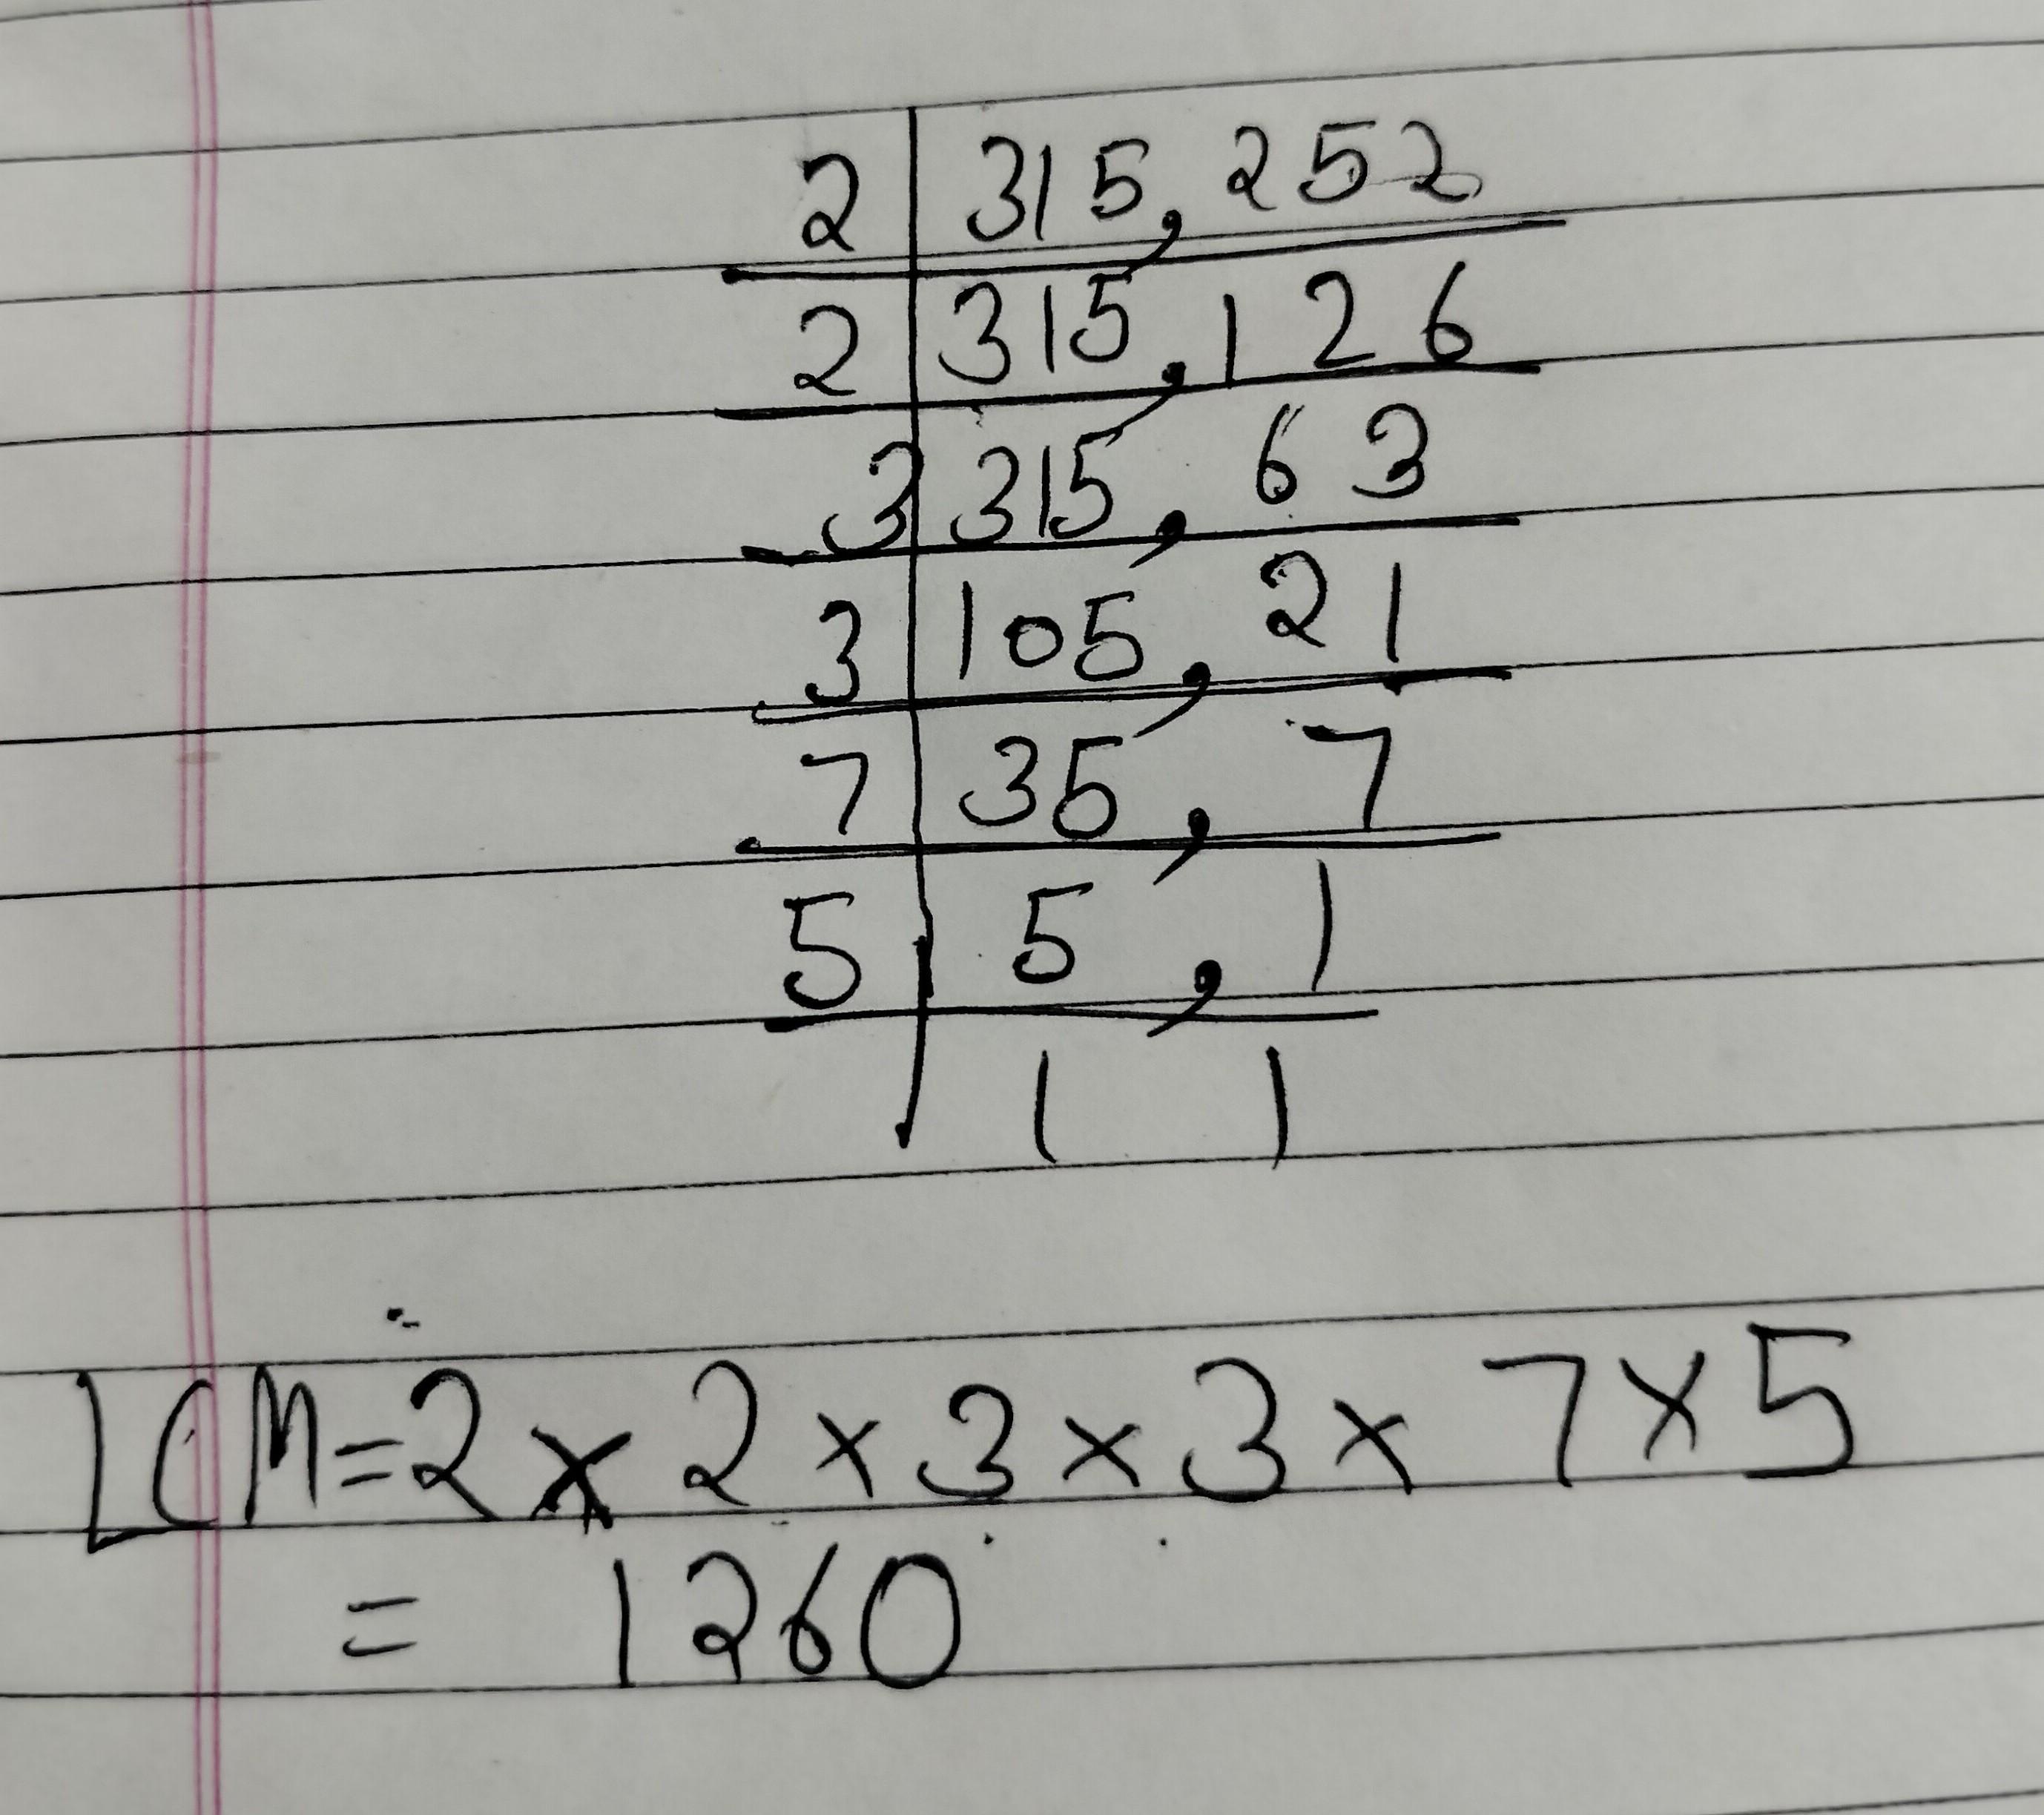 2 | 315, 252
2 | 315, 126
3 | 315, 63
3 | 105, 21
7 | 35, 7
5 | 5, 1
| 1 1
LCM = 2 × 2 × 3 × 3 × 7 × 5
= 1260